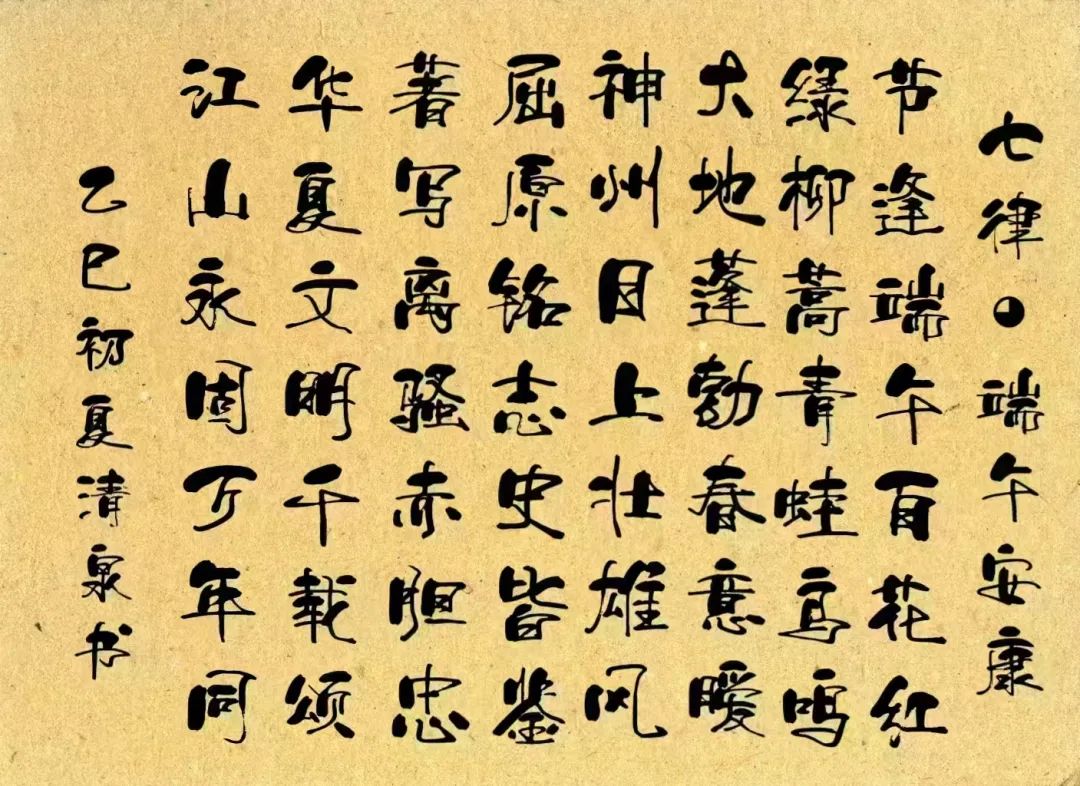 七律·端午安康
节逢端午百花红
绿柳蒿青蛙鸟鸣
大地蓬勃春意暖
神州目上壮雄风
屈原铭志史皆鉴
著写离骚赤胆忠
华夏文明千载颂
江山永固万年同
乙巳初夏清泉书